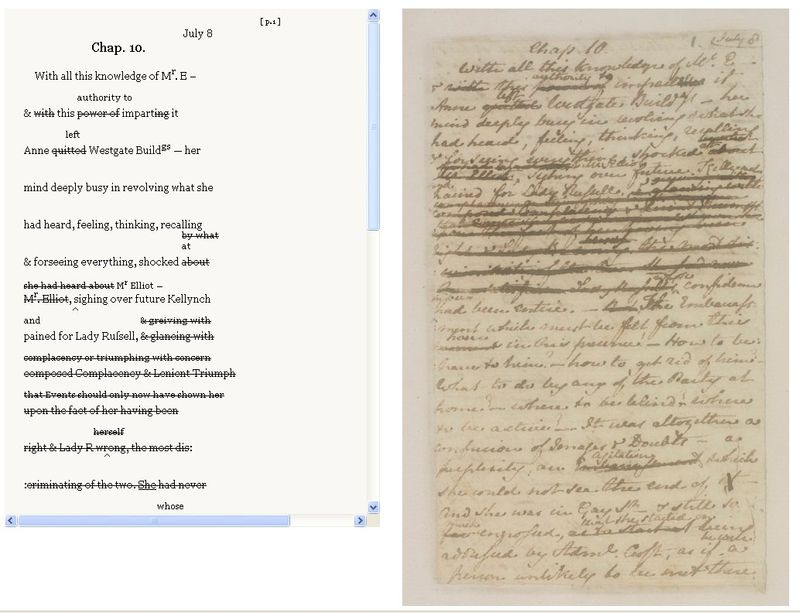 [p.1]
July 8
Chap. 10.
With all this knowledge of Mr. E –
authority to
& with this power of imparting it
left
Anne quitted Westgate Buildgs — her
mind deeply busy in revolving what she
had heard, feeling, thinking, recalling
by what
at
& forseeing everything, shocked about
she had heard about Mr Elliot –
Mr. Elliot, sighing over future Kellynch
^
and & greiving with
pained for Lady Rufsell, & glancing with
complacency or triumphing with concern
composed Complacency & Lenient Triumph
that Events should only now have shown her
upon the fact of her having been
herself
right & Lady R wrong, the most dis:
^
:criminating of the two. She had never
whose
1. July 8
Chap. 10.
With all this knowledge of Mr. E –
authority to
& with this power of imparting it
left
Anne quitted Westgate Buildgs — her
mind deeply busy in revolving what she
had heard, feeling, thinking, recalling
& forseeing everything, shocked about
Mr. Elliot, sighing over future Kellynch
pained for Lady Russell,
whose
confidence
had been entire. — The Embarrass:
:ment which must be felt from this
hour in his presence — How to be:
:have to him? — how to get rid of him? —
What to do by any of the Party at
home? — where to be blind? where
to be active? — It was altogether a
confusion of Images & Doubts — a
perplexity, an agitation which
she could not see the end of
and she was in Gay St. & still so
engrossed, that she started on being
addressed by Adml. Croft, as if
person unlikely to be met there